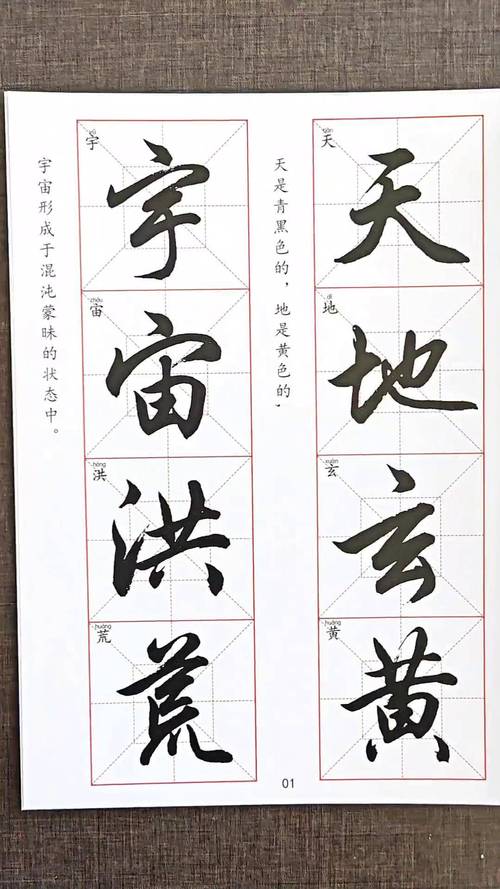 tiān
天
天
dì
地
地
xuán
玄
玄
huáng
黄
黄
天是青黑色的，地是黄色的，
yǔ
宇
宇
zhòu
宙
宙
hóng
洪
洪
huāng
荒
荒
宇宙形成于混沌蒙昧的状态中。
01